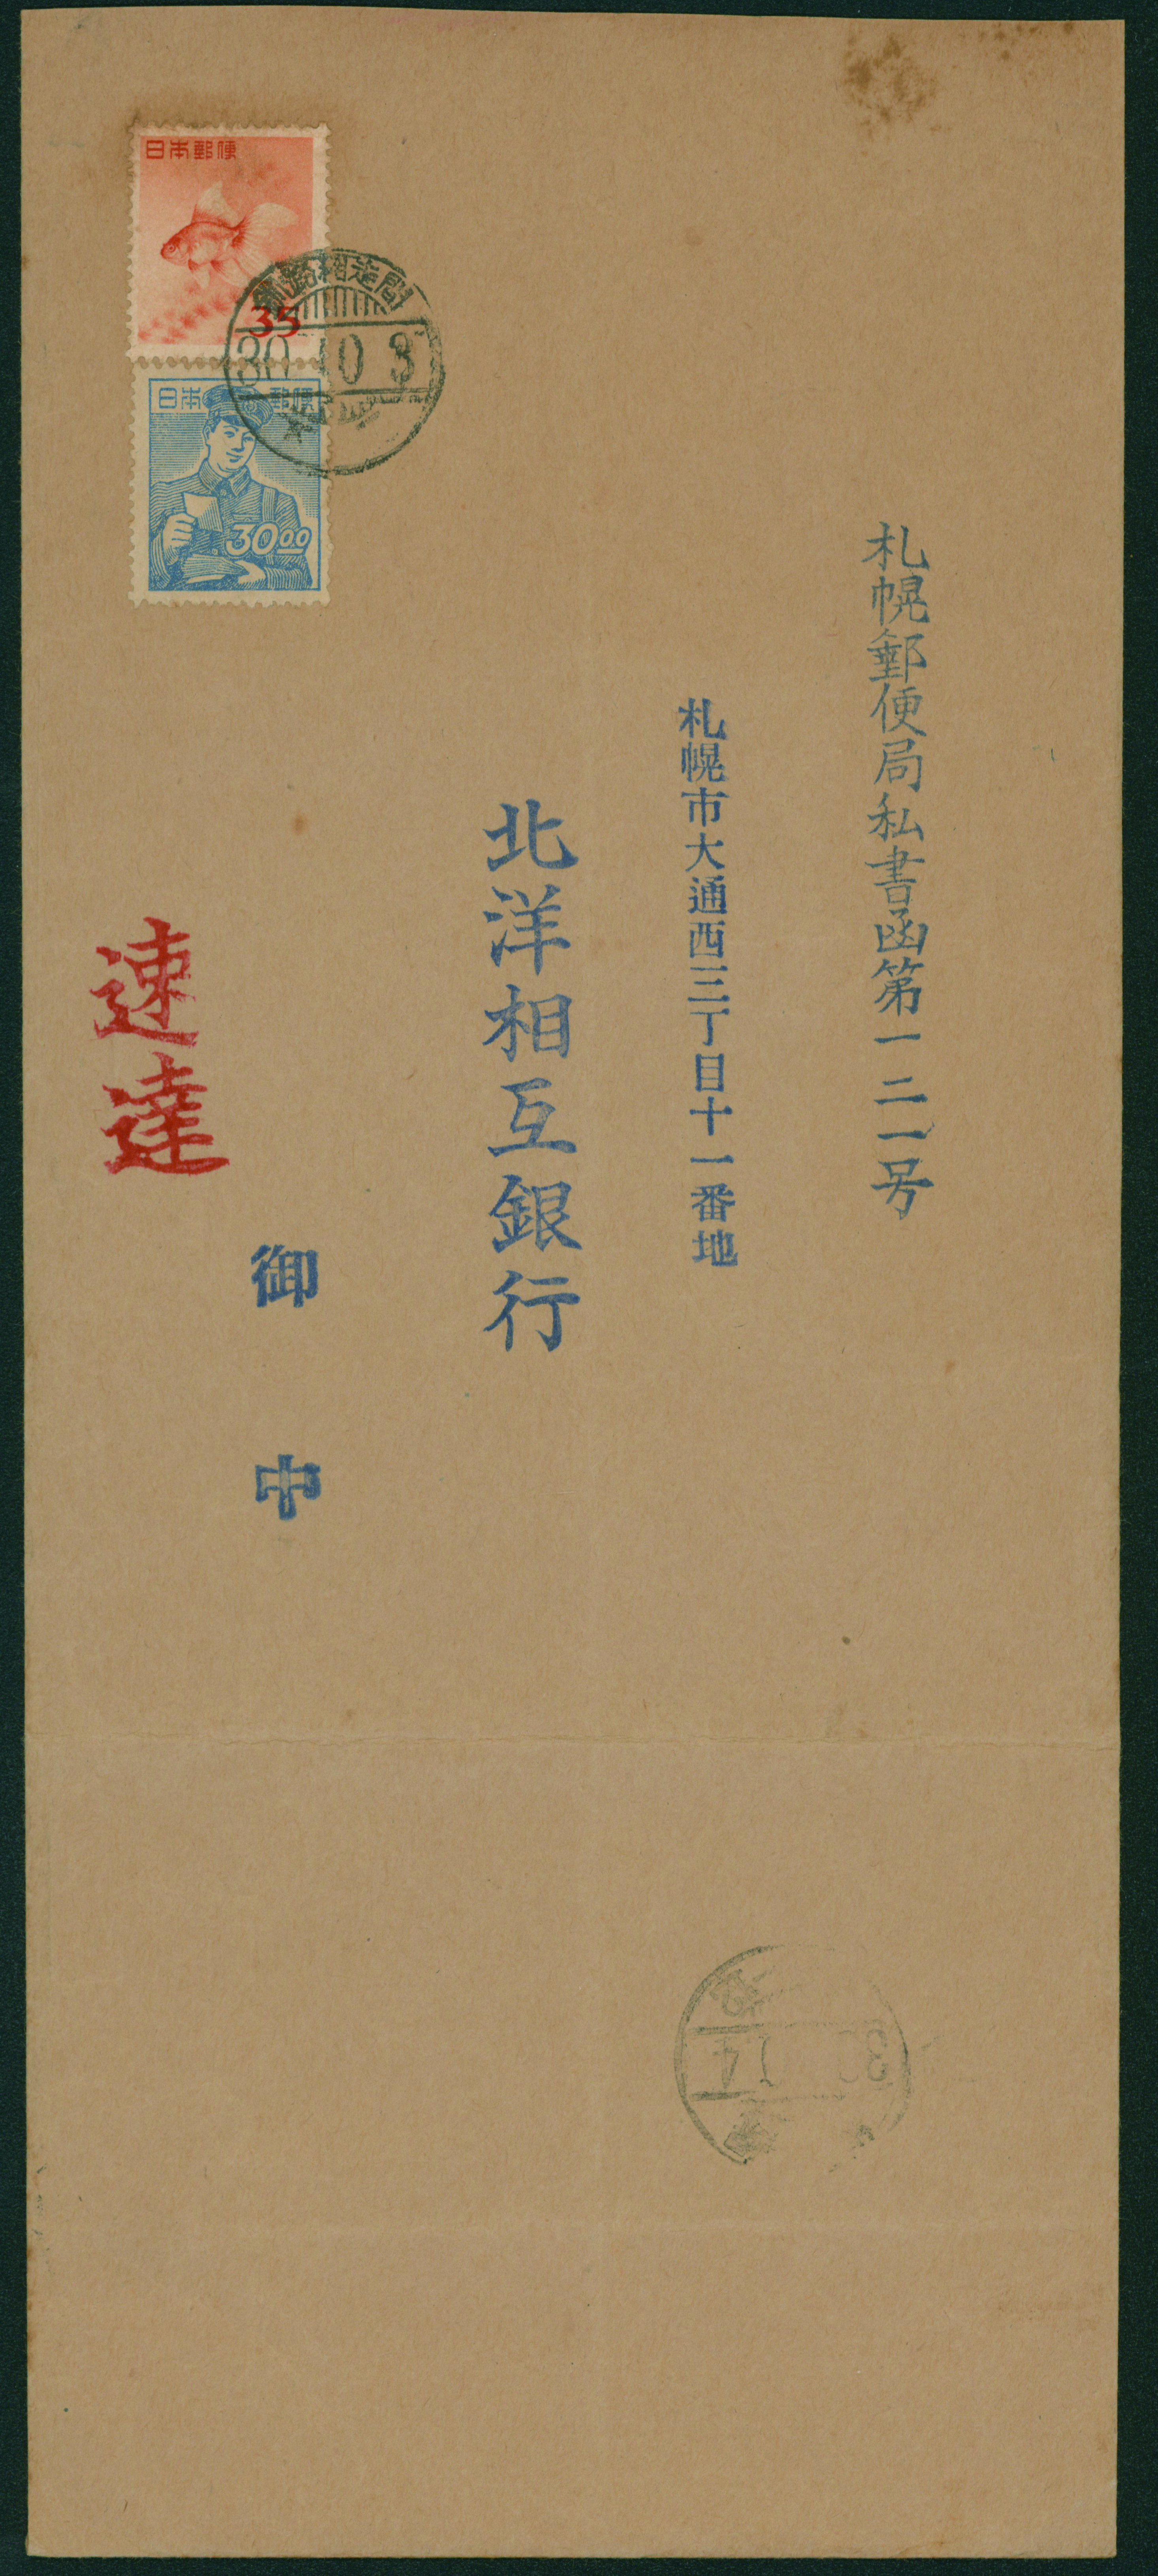 札幌郵便局私書函第一二一号
札幌市大通西三丁目十一番地
北洋相互銀行
御中
速達
日本郵便
35
日本郵便
30.00
釧路網走間
30 10 3